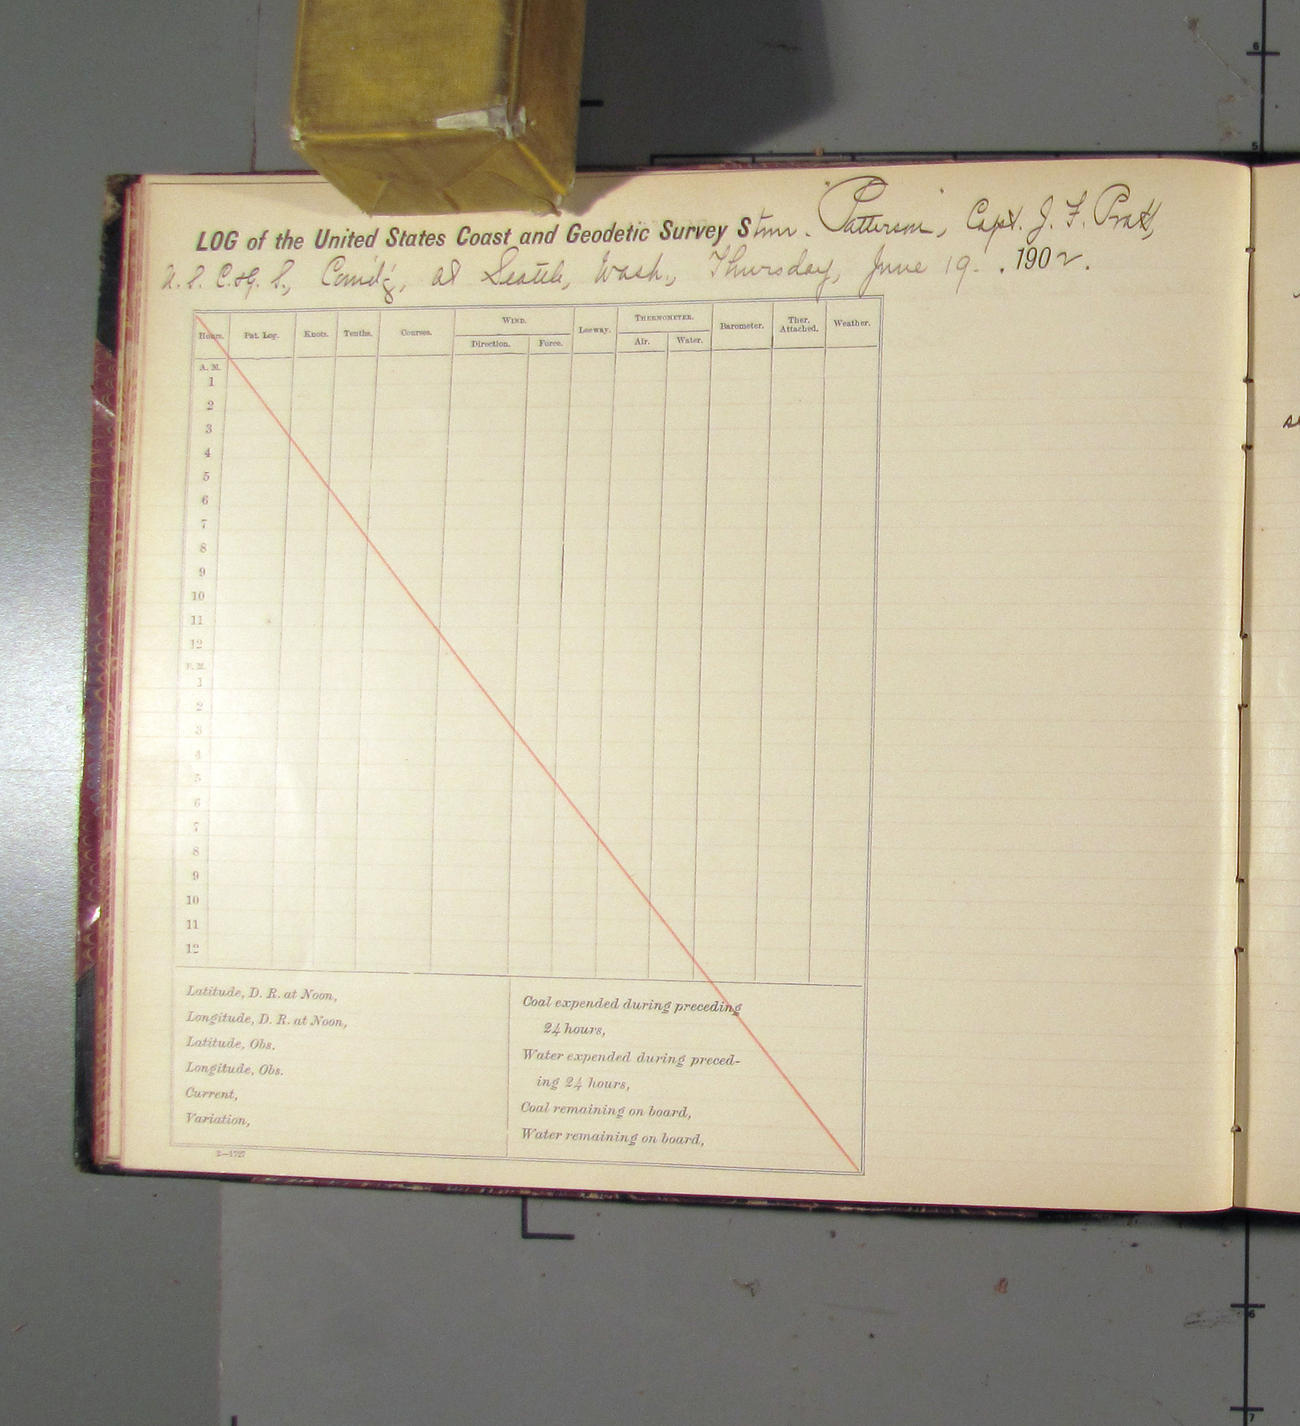 LOG of the United States Coast and Geodetic Survey Stmr. "Patterson", Capt. J. F. Pratt,
U. S. C. & G. S., Comd'g, at Seattle, Wash., Thursday, June 19. , 1902.
Hours. Pat. Log. Knots. Tenths. Courses. WIND. Leeway. THERMOMETER. Barometer. Ther. Attached. Weather.
Direction. Force. Air. Water.
A. M.
1
2
3
4
5
6
7
8
9
10
11
12
P. M.
1
2
3
4
5
6
7
8
9
10
11
12
Latitude, D. R. at Noon,
Longitude, D. R. at Noon,
Latitude, Obs.
Longitude, Obs.
Current,
Variation,
Coal expended during preceding
24 hours,
Water expended during preced-
ing 24 hours,
Coal remaining on board,
Water remaining on board,
2—1727
5
6
6
7